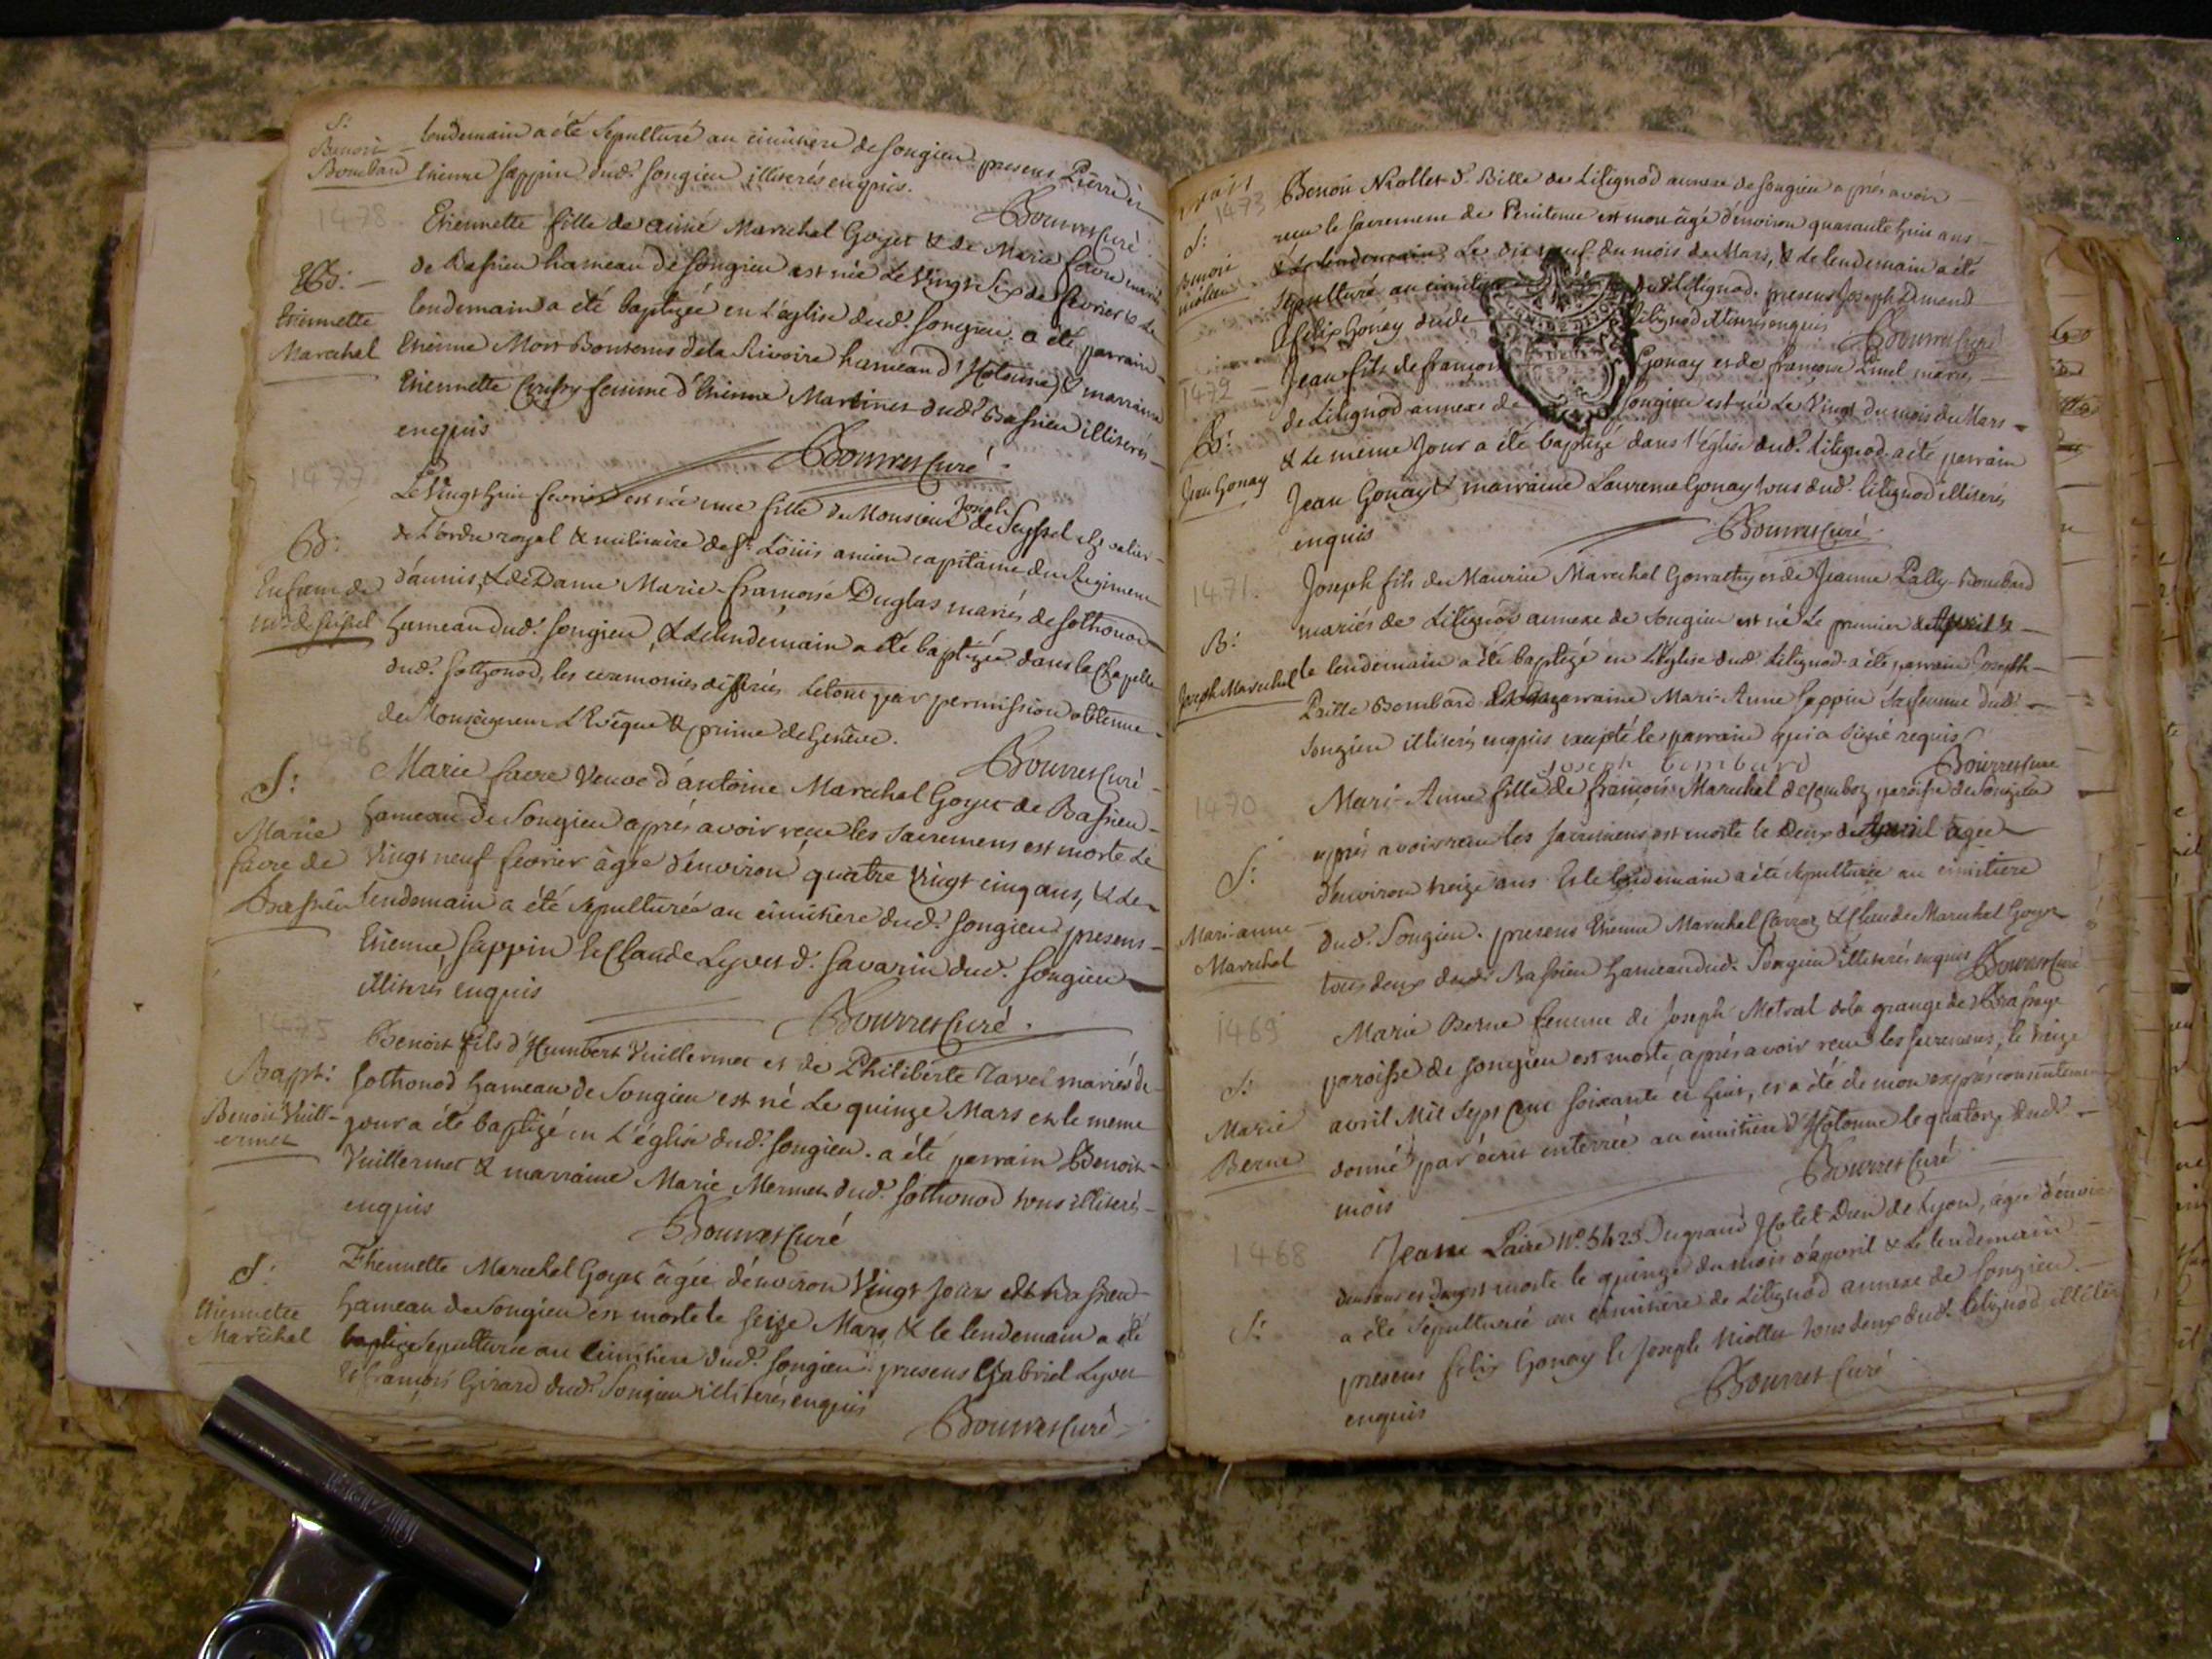 S:
Benoit
Bombard
lendemain a été sepulturé au cimitiere de songieu presens Pierre et
Etienne sappin dud. songieu illiterés enquis.
Bourret Curé
1478
Etiennette fille de aimé Marechal Goyet & de Marie favre mariés
de Bassieu hameau de songieu est née Le Vingt Six de fevrier & Le
lendemain a été baptizée en L'église dud. songieu. a été parrain
Etienne Mor Bontems de la Rivoire hameau d'Hotonne, & marraine
Etiennette femme d'Etienne Martinet dud. Bassieu illiterés
enquis
Bourret Curé
B:
Etiennette
Marechal
1477
Le Vingt huit fevrier est née une fille de Monsieur Joseph de Seyssel chevalier
de L'ordre royal & militaire de st. Loüis ancien capitaine du Regiment
d'aunis, & de Dame Marie-françoise Duglas mariés de sothonod
hameau dud. songieu, & Le lendemain a été baptizée dans la chapelle
dud. sothonod, les ceremonies differées Le tout par permission obtenue
de Monseigneur L'Evêque & prince de Geneve.
Bourret Curé
B:
Enfant de
mr de seissel
1476
Marie favre Veuve d'antoine Marechal Goyet de Bassieu
hameau de Songieu aprés avoir receu les sacremens est morte Le
Vingt neuf fevrier âgée d'environ quatre Vingt cinq ans, & Le
lendemain a été sepulturée au cimitiere dud. songieu presens
Etienne sappin et Claude Lyvet d. savarin dud. songieu
illiterés enquis
Bourret Curé
S:
Marie
favre de
Bassieu
1475
Benoit fils d'Humbert Vuillermet et de Philiberte Tavel mariés de
sothonod hameau de Songieu est né Le quinze Mars et le meme
jour a été baptizé en L'église dud. songieu. a été parrain Benoit
Vuillermet & marraine Marie Mermet dud. sothonod tous illiterés
enquis
Bourret Curé
Bapt:
Benoit Vuill-
ermet
Etiennette Marechal Goyet âgée d'environ Vingt jours de Bassieu
hameau de Songieu est morte le seize Mars, & le lendemain a été
baptizée sepulturée au cimitiere dud. songieu presens Gabriel Lyvet
et françois Girard dud. Songieu illiterés enquis
Bourret Curé
S:
Etiennette
Marechal
1473
Benoit Niollet d. Bille de Litignod annexe de songieu aprés avoir
receu le sacrement de Penitence est mort âgé d'environ quarante huit ans
& Le lendemain Le dix neuf du mois de Mars, & Le lendemain a été
sepulturé au cimitiere dud. Litignod. presens Joseph
et felix Gonay dud. Litignod illiterés enquis
Bourret Curé
S:
Benoit
niollet
1472
Jean fils de françois Gonay et de françoise mariés
de Litignod annexe de songieu est né Le Vingt du mois de Mars
& Le même Jour a été baptizé dans l'église dud. litignod. a été parrain
Jean Gonay & marraine Laurence Gonay tous dud. litignod illiterés
enquis
Bourret Curé
B:
Jean Gonay
1471.
Joseph fils de Maurice Marechal et de Jeanne Pally-Bombard
mariés de Litignod annexe de songieu est né Le premier d'Apvril &
le lendemain a été baptizé en L'église dud. Litignod. a été parrain Joseph
Bille Bombard Et marraine Marie-Anne Sappin sa femme dud.
songieu illiterés enquis excepté le parrain qui a signé requis
Joseph bombard
Bourret Curé
B:
Joseph Marechal
1470
Mari-Anne fille de françois Marechal paroisse de Songieu
aprés avoir receu les sacremens est morte le Deux d'Apvril âgée
d'environ treize ans Et le lendemain a été sepulturée au cimitiere
dud. Songieu. presens Etienne Marechal Carraz & Claude Marechal Goyet
tous deux de Bassieu hameau dud. Songieu illiterés enquis Bourret Curé
S:
Mari-anne
Marechal
1469
Marie Berne femme de Joseph Metral de la grange de
paroisse de songieu est morte, aprés avoir receu les sacremens, le treize
avril Mil sept cent soixante et huit, et a été de mon exprés consentement
donné par écrit enterrée au cimitiere d'Hotonne le quatorze dud.
mois
Bourret Curé
S:
Marie
Berne
1468
Jeane Laire No. 5423 Du grand Hotel Dieu de Lyon, âgée d'environ
est morte le quinze du mois d'apvril & Le lendemain
a été sepulturée au cimitiere de Litignod annexe de songieu.
presens felix Gonay et Joseph Niollet tous deux dud. litignod illiterés
enquis
Bourret Curé
S: